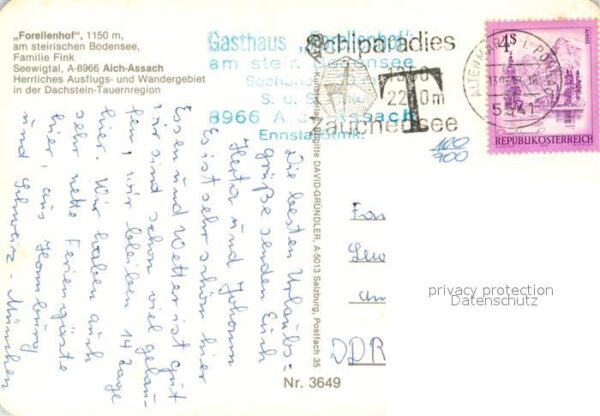 „Forellenhof“, 1150 m,
am steirischen Bodensee,
Familie Fink
Seewigtal, A-8966 Aich-Assach
Herrliches Ausflugs- und Wandergebiet
in der Dachstein-Tauernregion
Gasthaus „Forellenhof“
am steir. Bodensee
8966 Aich-Assach
Ennstal, Stmk.
Schiparadies
Zauchensee
T
5541
4S
REPUBLIK ÖSTERREICH
Die besten Urlaubs=
grüße senden Euch
Herta und Johann
Es ist sehr schön hier
Essen und Wetter ist gut
wir sind schon viel gelau=
fen, wir bleiben 14 Tage
hier. Wir haben auch
sehr nette Feriengäste
hier, aus Hamburg
und Schweiz - München
Brigitte DAVID-GRÜNDLER, A-5013 Salzburg, Postfach 35
Nr. 3649
DDR
privacy protection
Datenschutz